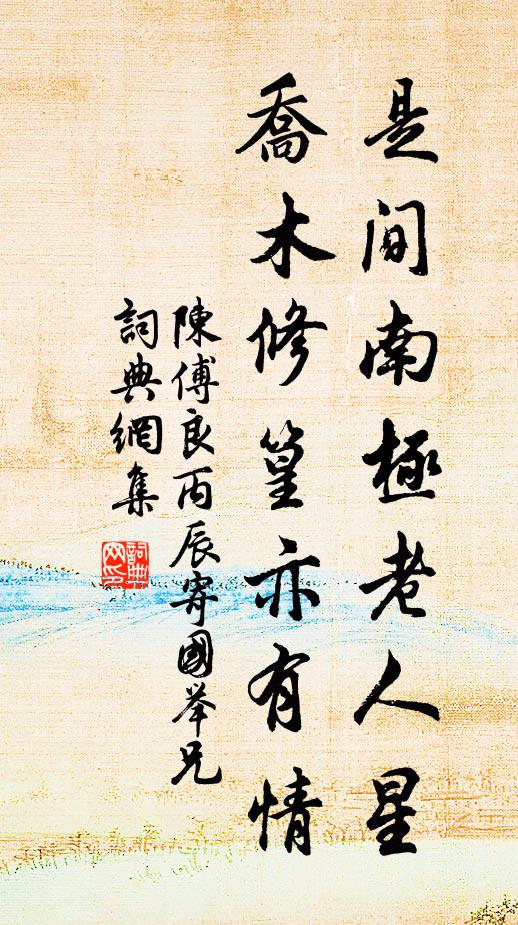 是間南極老人星
喬木修篁亦有情
陳傅良丙辰寄國举兄
詞典網集
詞典網印